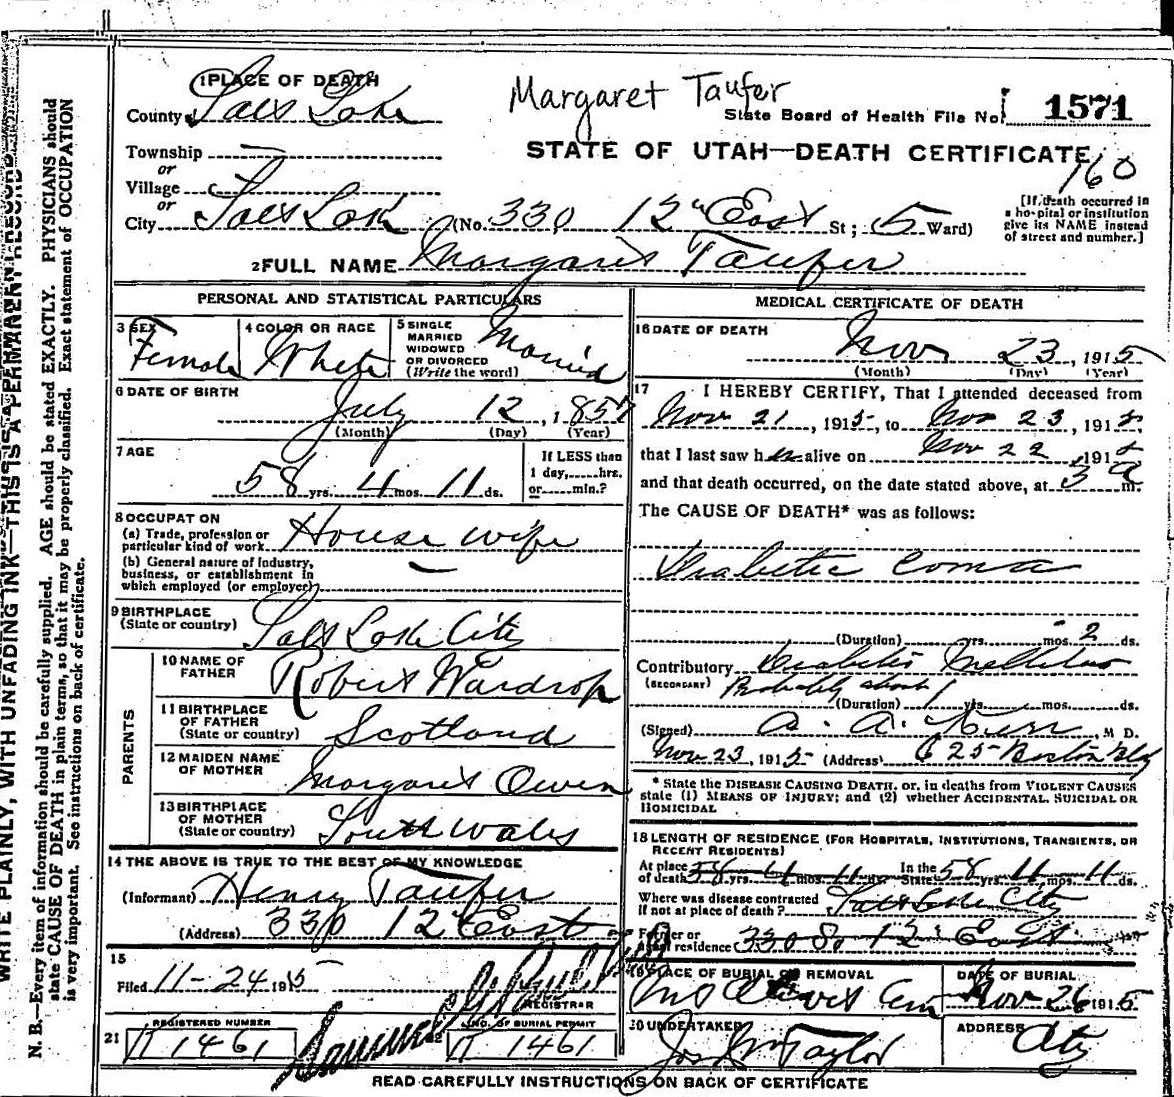 Margaret Taufer
1 PLACE OF DEATH
County Salt Lake
State Board of Health File No. 1571
Township —
STATE OF UTAH—DEATH CERTIFICATE
160
or
Village
or
City Salt Lake (No. 330 12" East St; 5 Ward)
[If death occurred in
a hospital or institution
give its NAME instead
of street and number.]
2 FULL NAME Margaret Taufer
PERSONAL AND STATISTICAL PARTICULARS
3 SEX Female
4 COLOR OR RACE White
5 SINGLE
MARRIED
WIDOWED
OR DIVORCED
(Write the word) Married
6 DATE OF BIRTH
July 12, 1857
(Month) (Day) (Year)
7 AGE
58 yrs. 4 mos. 11 ds.
If LESS than
1 day,......hrs.
or......min.?
8 OCCUPATION
(a) Trade, profession or
particular kind of work House wife
(b) General nature of industry,
business, or establishment in
which employed (or employer) —
9 BIRTHPLACE
(State or country) Salt Lake City
PARENTS
10 NAME OF
FATHER Robert Wardrop
11 BIRTHPLACE
OF FATHER
(State or country) Scotland
12 MAIDEN NAME
OF MOTHER Margaret Owen
13 BIRTHPLACE
OF MOTHER
(State or country) South Wales
14 THE ABOVE IS TRUE TO THE BEST OF MY KNOWLEDGE
(Informant) Henry Taufer
(Address) 330 12" East
15
Filed 11-24 1915
REGISTRAR
21 REGISTERED NUMBER
1461
22 NO. OF BURIAL PERMIT
1461
MEDICAL CERTIFICATE OF DEATH
16 DATE OF DEATH
Nov 23, 1915
(Month) (Day) (Year)
17 I HEREBY CERTIFY, That I attended deceased from
Nov 21, 1915, to Nov 23, 1915,
that I last saw her alive on Nov 22 1915
and that death occurred, on the date stated above, at 3 a m.
The CAUSE OF DEATH* was as follows:
Diabetic Coma
(Duration) yrs. - mos. 2 ds.
Contributory Diabetis Mellitus
(SECONDARY) Probably about 1
(Duration) yrs. mos. ds.
(Signed) A. A. Kerr, M D.
Nov 23, 1915 (Address) 625 Boston Bldg
* State the DISEASE CAUSING DEATH, or, in deaths from VIOLENT CAUSES
state (1) MEANS OF INJURY; and (2) whether ACCIDENTAL, SUICIDAL OR
HOMICIDAL
18 LENGTH OF RESIDENCE (FOR HOSPITALS, INSTITUTIONS, TRANSIENTS, OR
RECENT RESIDENTS)
At place
of death 58 yrs. 4 mos. 11 ds. In the
State 58 yrs. 11 mos. 11 ds.
Where was disease contracted
if not at place of death? Salt Lake City
Former or
usual residence 330 So 12 East
19 PLACE OF BURIAL OR REMOVAL
Mt Olivet Cem
DATE OF BURIAL
Nov 26 1915
20 UNDERTAKER
Jos Wm Taylor
ADDRESS
City
READ CAREFULLY INSTRUCTIONS ON BACK OF CERTIFICATE
WRITE PLAINLY, WITH UNFADING INK—THIS IS A PERMANENT RECORD
N. B.—Every item of information should be carefully supplied. AGE should be stated EXACTLY. PHYSICIANS should
state CAUSE OF DEATH in plain terms, so that it may be properly classified. Exact statement of OCCUPATION
is very important. See instructions on back of certificate.